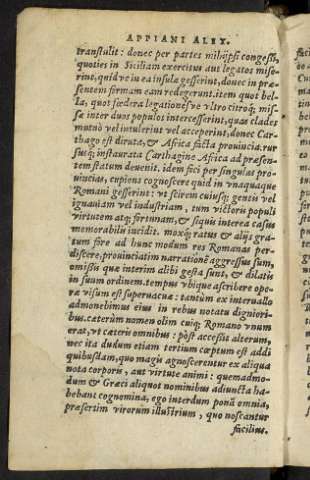 APPIANI ALEX.
transtulit: donec per partes mihijpsi congessi,
quoties in Siciliam exercitus aut legatos mise-
rint, quidve in ea insula gesserint, donec in præ-
sentem formam eam redegerunt. item quot bel-
la, quot fœdera legationesve vltro citroq; mis-
sæ inter duos populos intercesserint, quas clades
mutuò vel intulerint vel acceperint, donec Car-
thago est diruta, & Africa facta prouincia. rur
susq; instaurata Carthagine Africa ad præsen-
tem statum deuenit. idem feci per singulas pro-
uincias, cupiens cognoscere quid in vnaquaque
Romani gesserint: vt scirem cuiusq; gentis vel
ignauiam vel industriam, tum victoris populi
virtutem atq; fortunam, & siquis interea casus
memorabilis incidit. moxq; ratus & alijs gra-
tum fore ad hunc modum res Romanas per-
discere, prouinciatim narrationẽ aggressus sum,
omissis quæ interim alibi gesta sunt, & dilatis
in suum ordinem. tempus vbique ascribere ope-
ræ visum est superuacuæ: tantùm ex interuallo
admonebimus eius in rebus notatu digniori-
bus. cæterùm nomen olim cuiq; Romano vnum
erat, vt cæteris omnibus: pòst accessit alterum,
nec ita dudum etiam tertium cœptum est addi
quibusdam, quo magis agnoscerentur ex aliqua
nota corporis, aut virtute animi: quemadmo-
dum & Græci aliquot nominibus adiuncta ha-
bebant cognomina, ego interdum ponã omnia,
præsertim virorum illustrium, quo noscantur
facilius.